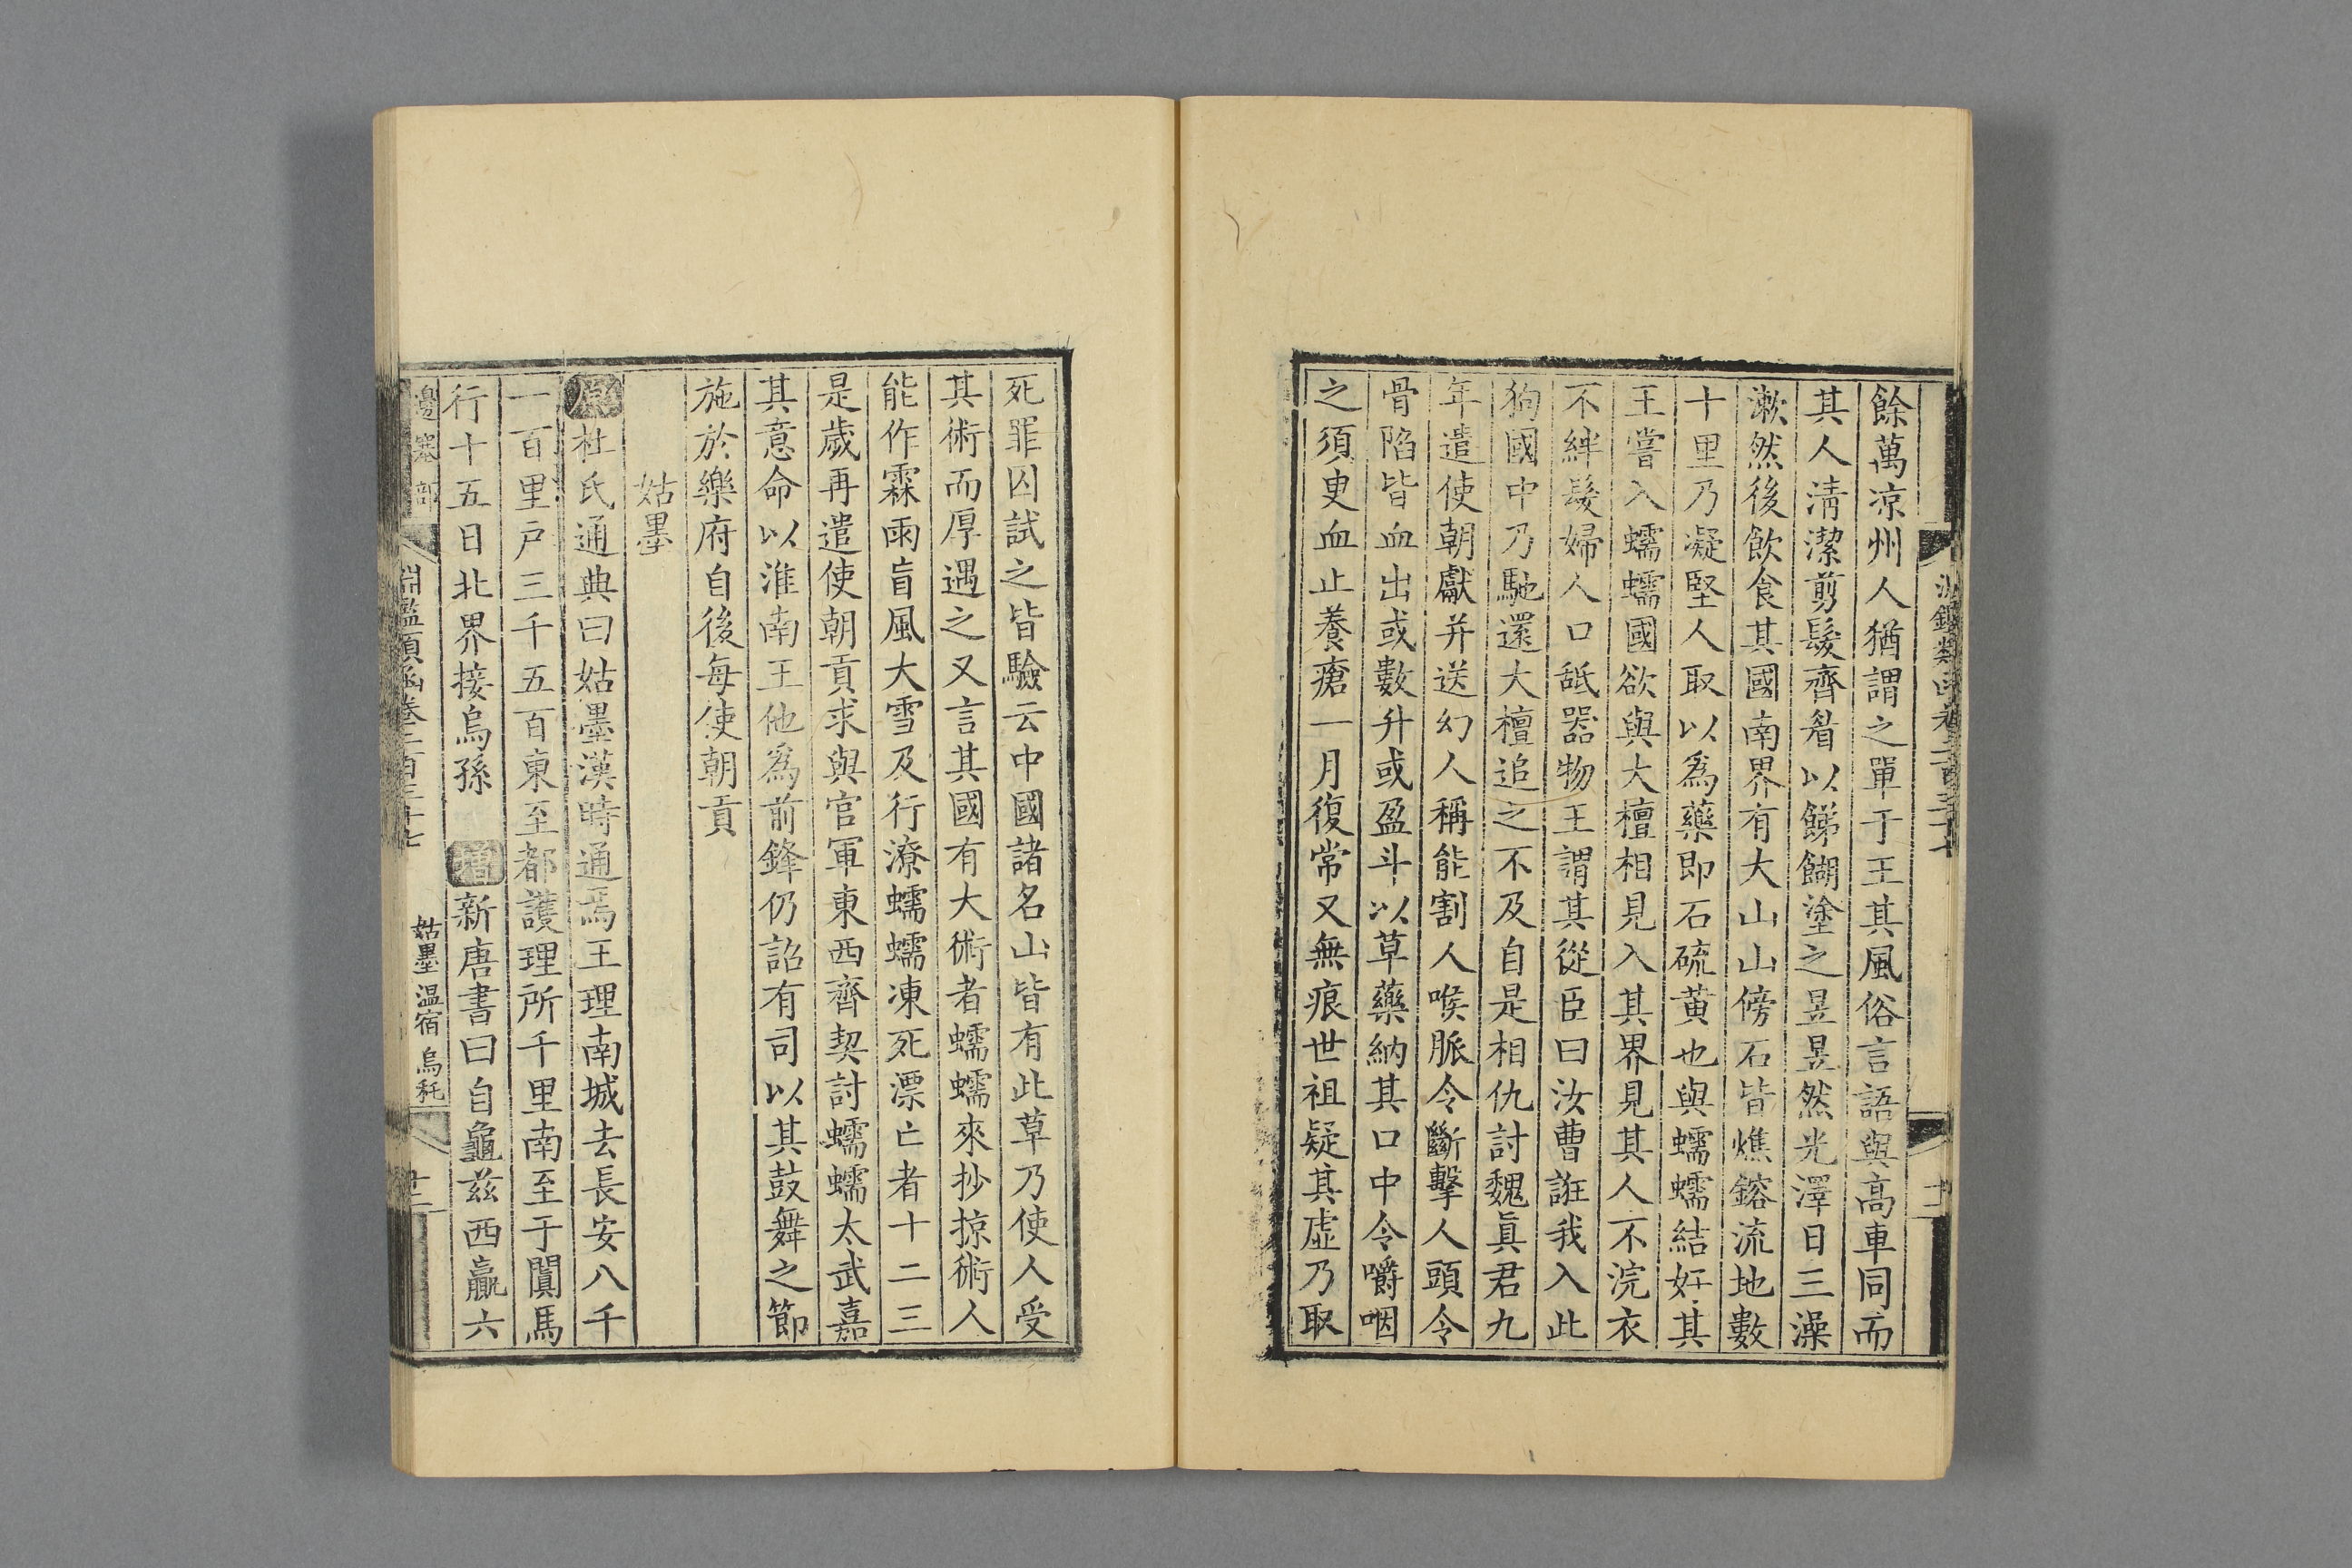 餘萬凉州人猶謂之單于王其風俗言語與高車同而
其人清潔剪髮齊眉以餳餬塗之昱昱然光澤日三澡
漱然後飲食其國南界有大山山傍石皆燋鎔流地數
十里乃凝堅人取以爲藥即石硫黄也與蠕蠕結好其
王嘗入蠕蠕國欲與大檀相見入其界見其人不浣衣
不絆髮婦人口舐器物王謂其從臣曰汝曹誑我入此
狗國中乃馳還大檀追之不及自是相仇討魏眞君九
年遣使朝獻并送幻人稱能割人喉脈令斷擊人頭令
骨陷皆血出或數升或盈斗以草藥納其口中令嚼咽
之須臾血止養瘡一月復常又無痕世祖疑其虛乃取
死罪囚試之皆驗云中國諸名山皆有此草乃使人受
其術而厚遇之又言其國有大術者蠕蠕來抄掠術人
能作霖雨盲風大雪及行潦蠕蠕凍死漂亡者十二三
是歲再遣使朝貢求與官軍東西齊契討蠕蠕太武嘉
其意命以淮南王他爲前鋒仍詔有司以其鼓舞之節
施於樂府自後每使朝貢
姑墨
原杜氏通典曰姑墨漢時通焉王理南城去長安八千
一百里户三千五百東至都護理所千里南至于闐馬
行十五日北界接烏孫 增新唐書曰自龜茲西贏六
邊塞部 淵鑑類函卷二百三十七 姑墨 温宿 烏秅 廿二